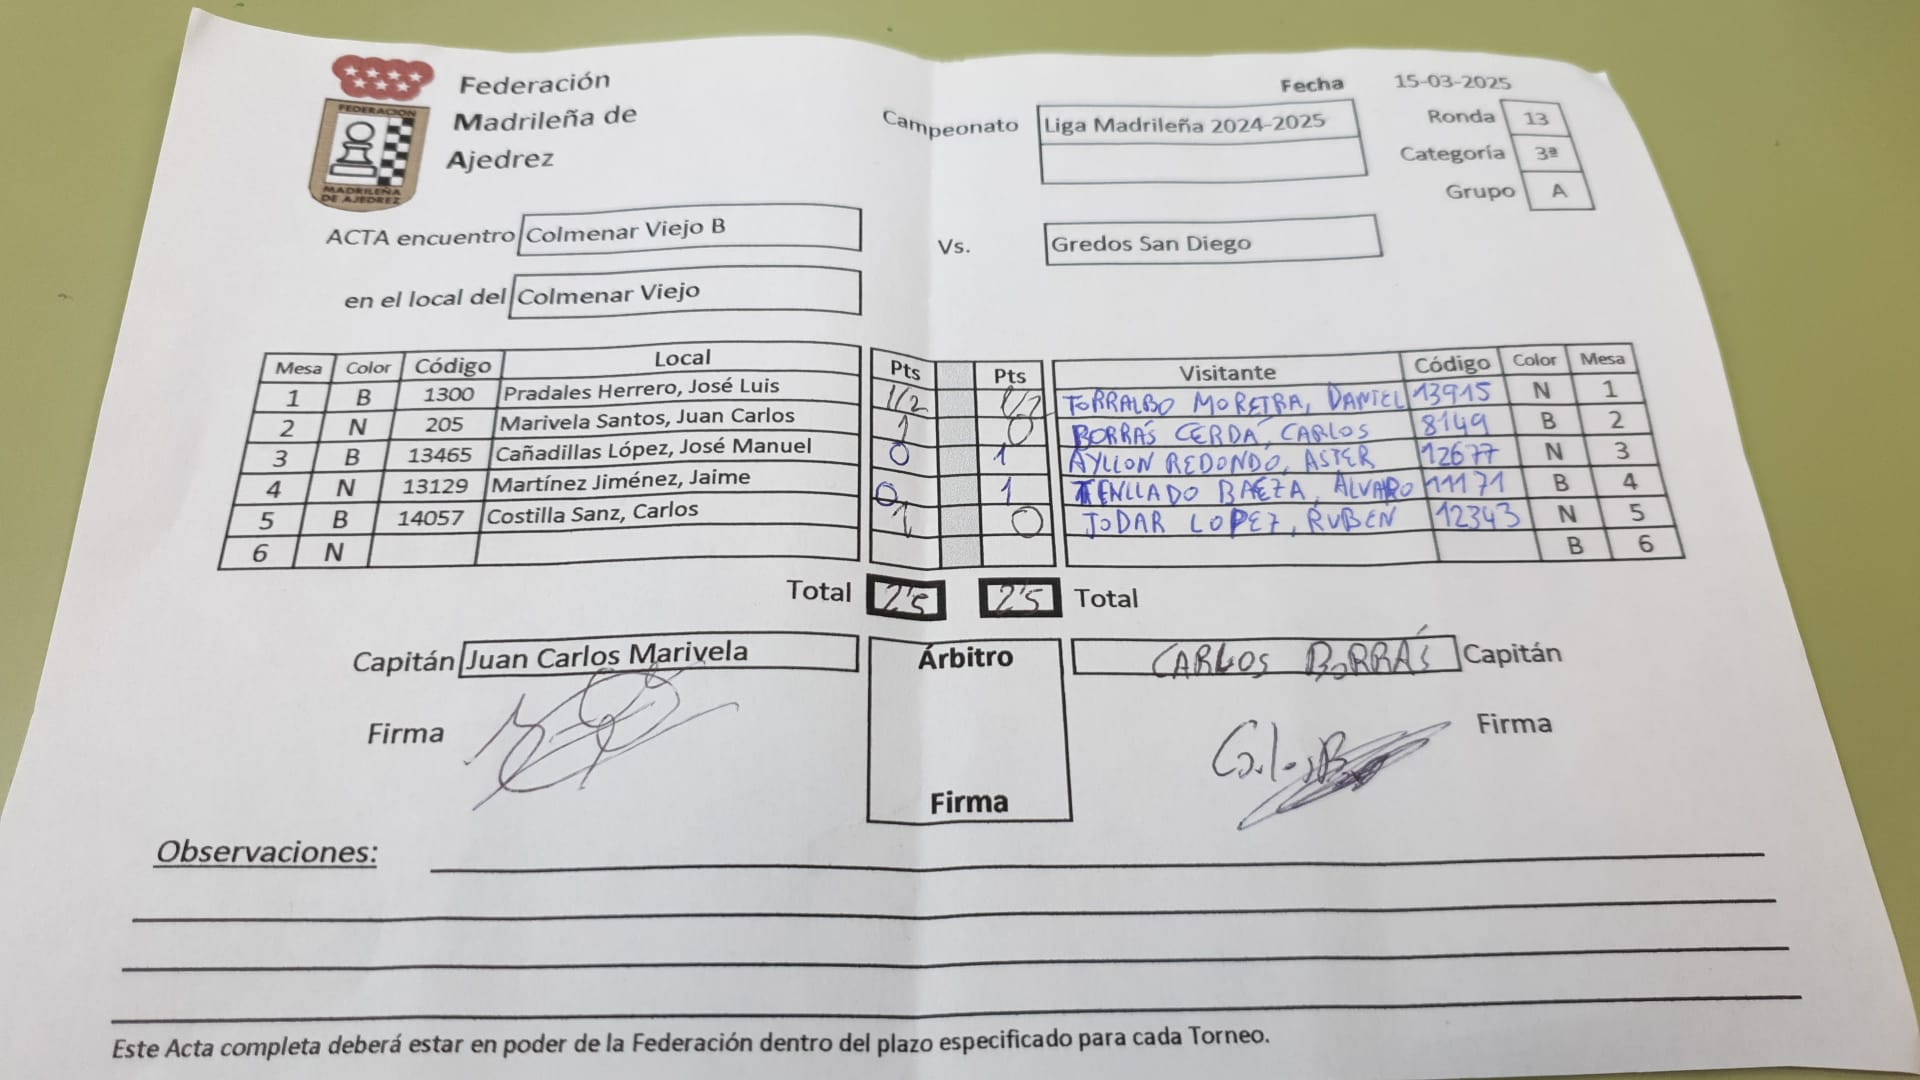 Federación
Madrileña de
Ajedrez
FEDERACION
MADRILEÑA
DE AJEDREZ
Fecha 15-03-2025
Campeonato Liga Madrileña 2024-2025
Ronda 13
Categoría 3ª
Grupo A
ACTA encuentro Colmenar Viejo B Vs. Gredos San Diego
en el local del Colmenar Viejo
Mesa Color Código Local Pts Pts Visitante Código Color Mesa
1 B 1300 Pradales Herrero, José Luis 1/2 1/2 TORRALBO MOREIRA, DANIEL 13915 N 1
2 N 205 Marivela Santos, Juan Carlos 1 0 BORRÁS CERDÁ, CARLOS 8149 B 2
3 B 13465 Cañadillas López, José Manuel 0 1 AYLLON REDONDO, ASTER 12677 N 3
4 N 13129 Martínez Jiménez, Jaime 0 1 TENLLADO BAEZA, ALVARO 11171 B 4
5 B 14057 Costilla Sanz, Carlos 1 0 JODAR LOPEZ, RUBEN 12343 N 5
6 N B 6
Total 2'5 2'5 Total
Capitán Juan Carlos Marivela Árbitro CARLOS BORRÁS Capitán
Firma Firma
Firma
Observaciones:
Este Acta completa deberá estar en poder de la Federación dentro del plazo especificado para cada Torneo.